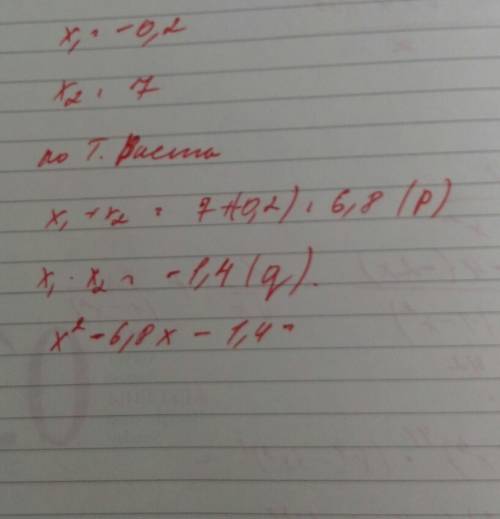 x₁ = -0,2
x₂ = 7
по Т. Виета
x₁ + x₂ = 7+(-0,2) = 6,8 (p)
x₁ · x₂ = -1,4 (q).
x² - 6,8x - 1,4 =